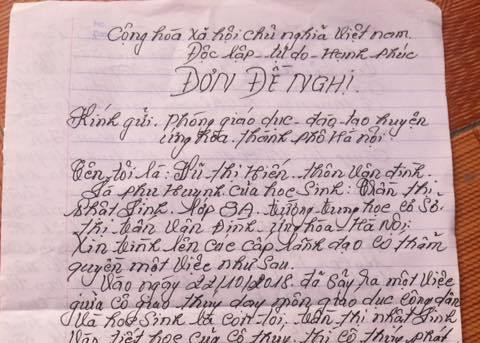 Cộng hòa xã hội chủ nghĩa Việt nam.
Độc lập - tự do - Hạnh phúc
ĐƠN ĐỀ NGHỊ.
Kính gửi. Phòng giáo dục - đào tạo huyện
ứng hòa. thành phố Hà nội.
Tên tôi là: Vũ thị Hiến - thôn Vân đình.
Là phụ Huynh của học Sinh: Trần thị
nhất Sinh. lớp 8A. trường trung học cơ Sở.
thị trấn Vân Đình. ứng hòa Hà Nội.
Xin trình lên các cấp Lãnh đạo có thẩm
quyền một Việc như Sau.
Vào ngày 22/10/2018. đã Sẩy ra một Việc
giữa cô giáo thủy dạy môn giáo dục công dân
Và học Sinh là con tôi. trần thị nhất Sinh
tiết học của cô thủy. thì cô thủy phát